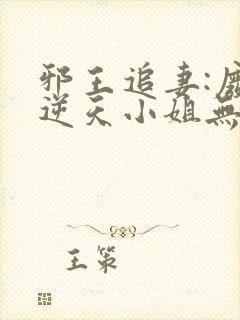 邪王追妻:
逆天小姐無
王策